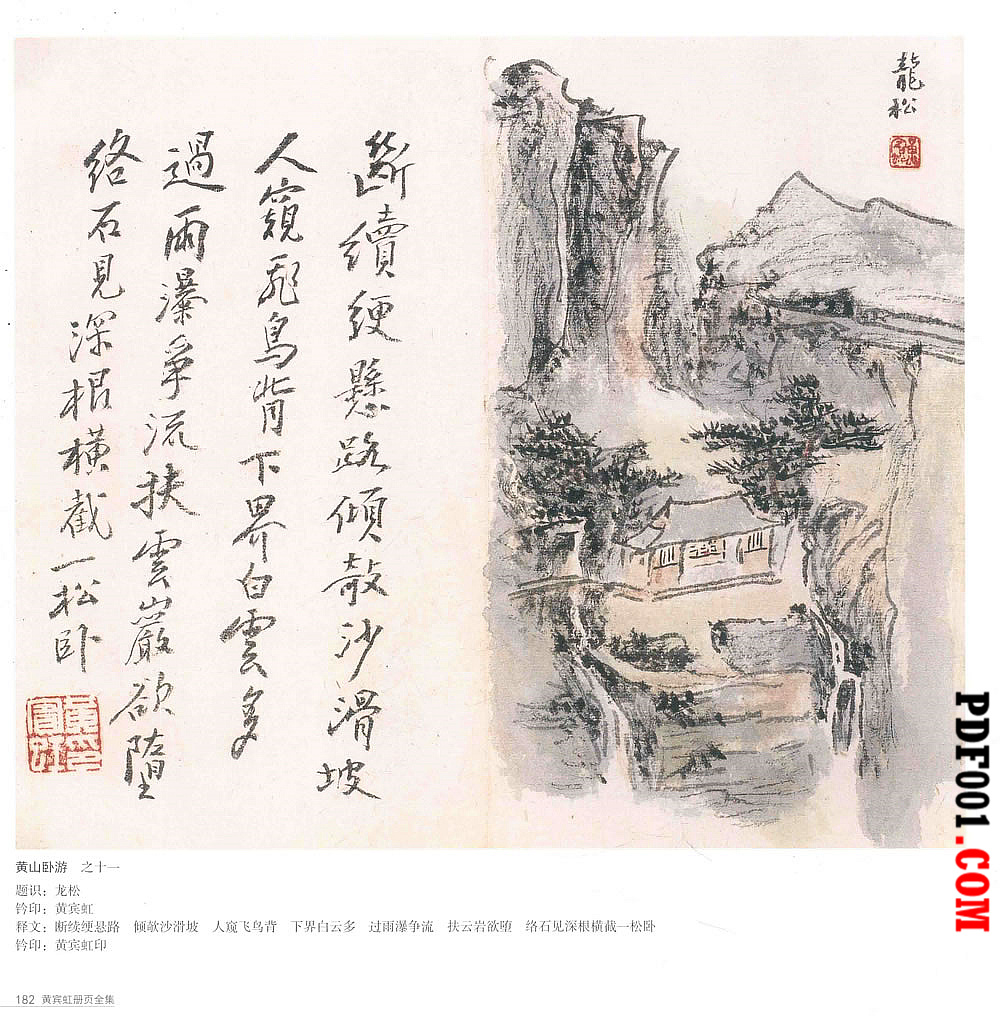 龍松
斷續綆懸路傾欹沙滑坡
人窺飛鳥背下界白雲多
過雨瀑爭流扶雲巖欲墮
絡石見深根橫截一松卧
黄山卧游 之十一
题识：龙松
钤印：黄宾虹
释文：断续绠悬路 倾欹沙滑坡 人窥飞鸟背 下界白云多 过雨瀑争流 扶云岩欲堕 络石见深根横截一松卧
钤印：黄宾虹印
182 黄宾虹册页全集
PDF001.COM